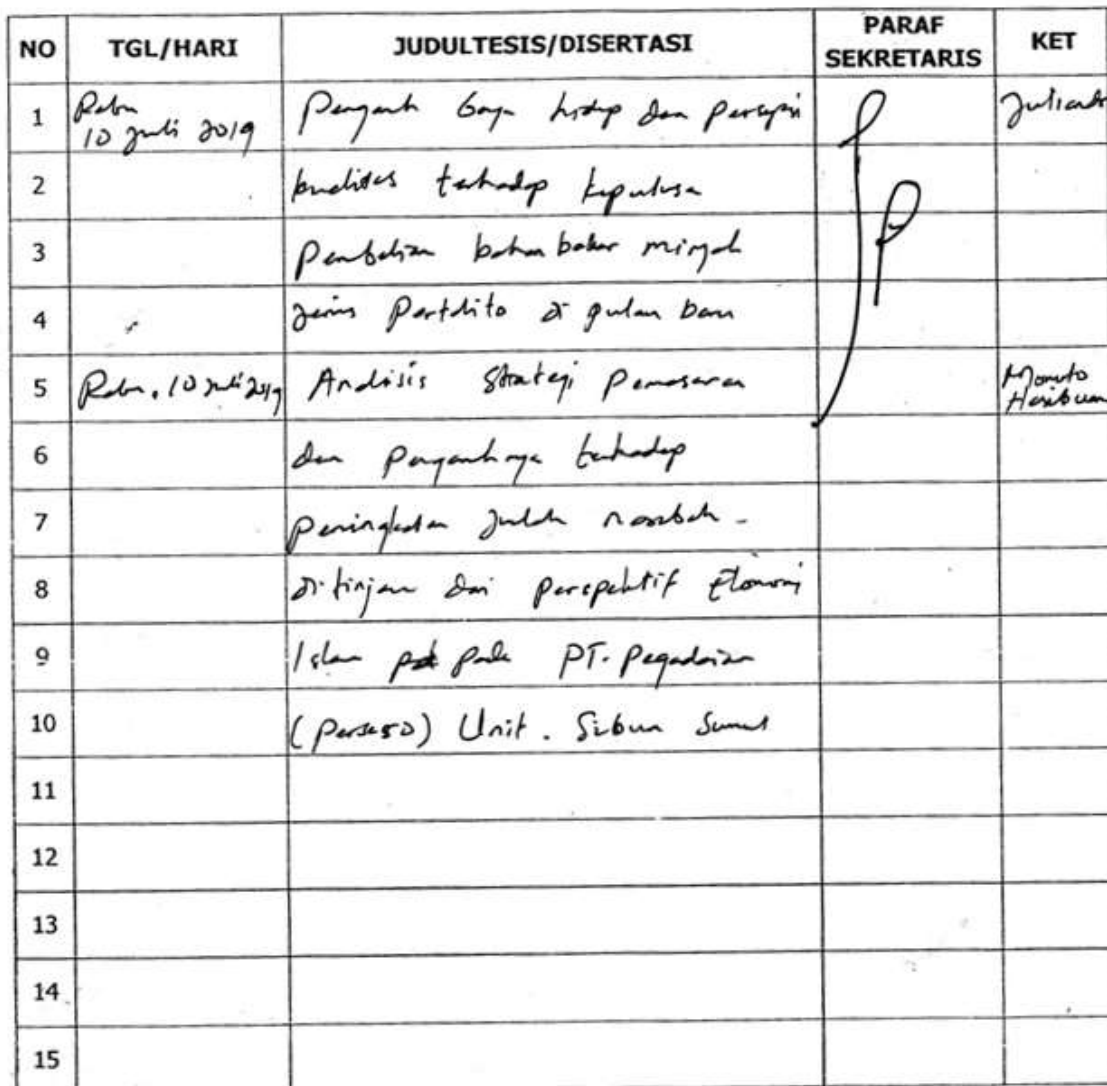 NO TGL/HARI JUDULTESIS/DISERTASI PARAF SEKRETARIS KET
1 Rabu 10 Juli 2019 Pengaruh Gaya hidup dan Persepsi
2 kualitas terhadap keputusan
3 Pembelian bahan bakar minyak
4 Jenis Pertalite di
5 Rabu, 10 Juli 2019 Analisis Strategi Pemasaran Hasibuan
6 dan Pengaruhnya terhadap
7 Peningkatan Jumlah nasabah -
8 ditinjau dari perspektif Ekonomi
9 Islam pada PT. Pegadaian
10 (Persero) Unit.
11
12
13
14
15